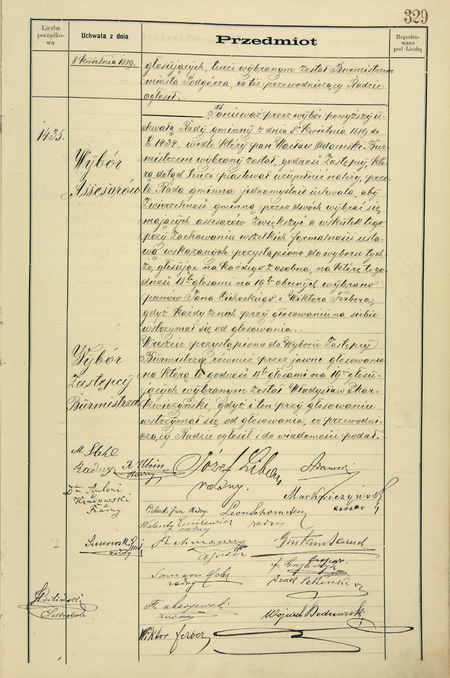 329
Liczba porządkowa
Uchwała z dnia
Przedmiot
Regestrowano pod Liczbą
8 kwietnia 1889.
głosujących, tenże wybranym został Burmistrzem
miasta Podgórza, co też przewodniczący Radzie
ogłosił.
1435.
Wybór
Assesorów
Ponieważ przez wybór powyższy u-
chwałą Rady gminnej z dnia 8 kwietnia 1889 do
L. 1434, wedle której pan Wacław Adamski Bur-
mistrzem wybrany został, godność Zastępcy, któ-
rą dotąd tenże piastował uzupełnić należy, prze-
to Rada gminna jednomyślnie uchwala, aby
Zwierzchność gminną przez dwóch wybrać się
mających asesorów zwiększyć a wskutek tego
przy zachowaniu wszelkich formalności usta-
wą wskazanych przystąpiono do wyboru tych
że, głosując na każdego z osobna, na które to go-
dność 18tu głosami na 19tu obecnych wybrano
panów Jana Cichockiego i Wiktora Ferbera,
gdyż każdy z nich przy głosowaniu na siebie
wstrzymał się od głosowania.
Wybór
Zastępcy
Burmistrza
Wreszcie przystąpiono do Wyboru Zastępcy
Burmistrza również przez jawne głosowanie
na którą to godność 18tu głosami na 19tu głosu-
jących wybranym został Władysław Mar-
kwiczyński, gdyż i ten przy głosowaniu
wstrzymał się od głosowania, co przewodni-
czący Radzie ogłosił i do wiadomości podał.
Radny
Józef Liban
radny.
Adamski
radny
Leon Schönberg
radny
Walenty Emilewicz
radny
Gustaw Baruch
radny
radny
Wojciech Bednarski
Wiktor Ferber